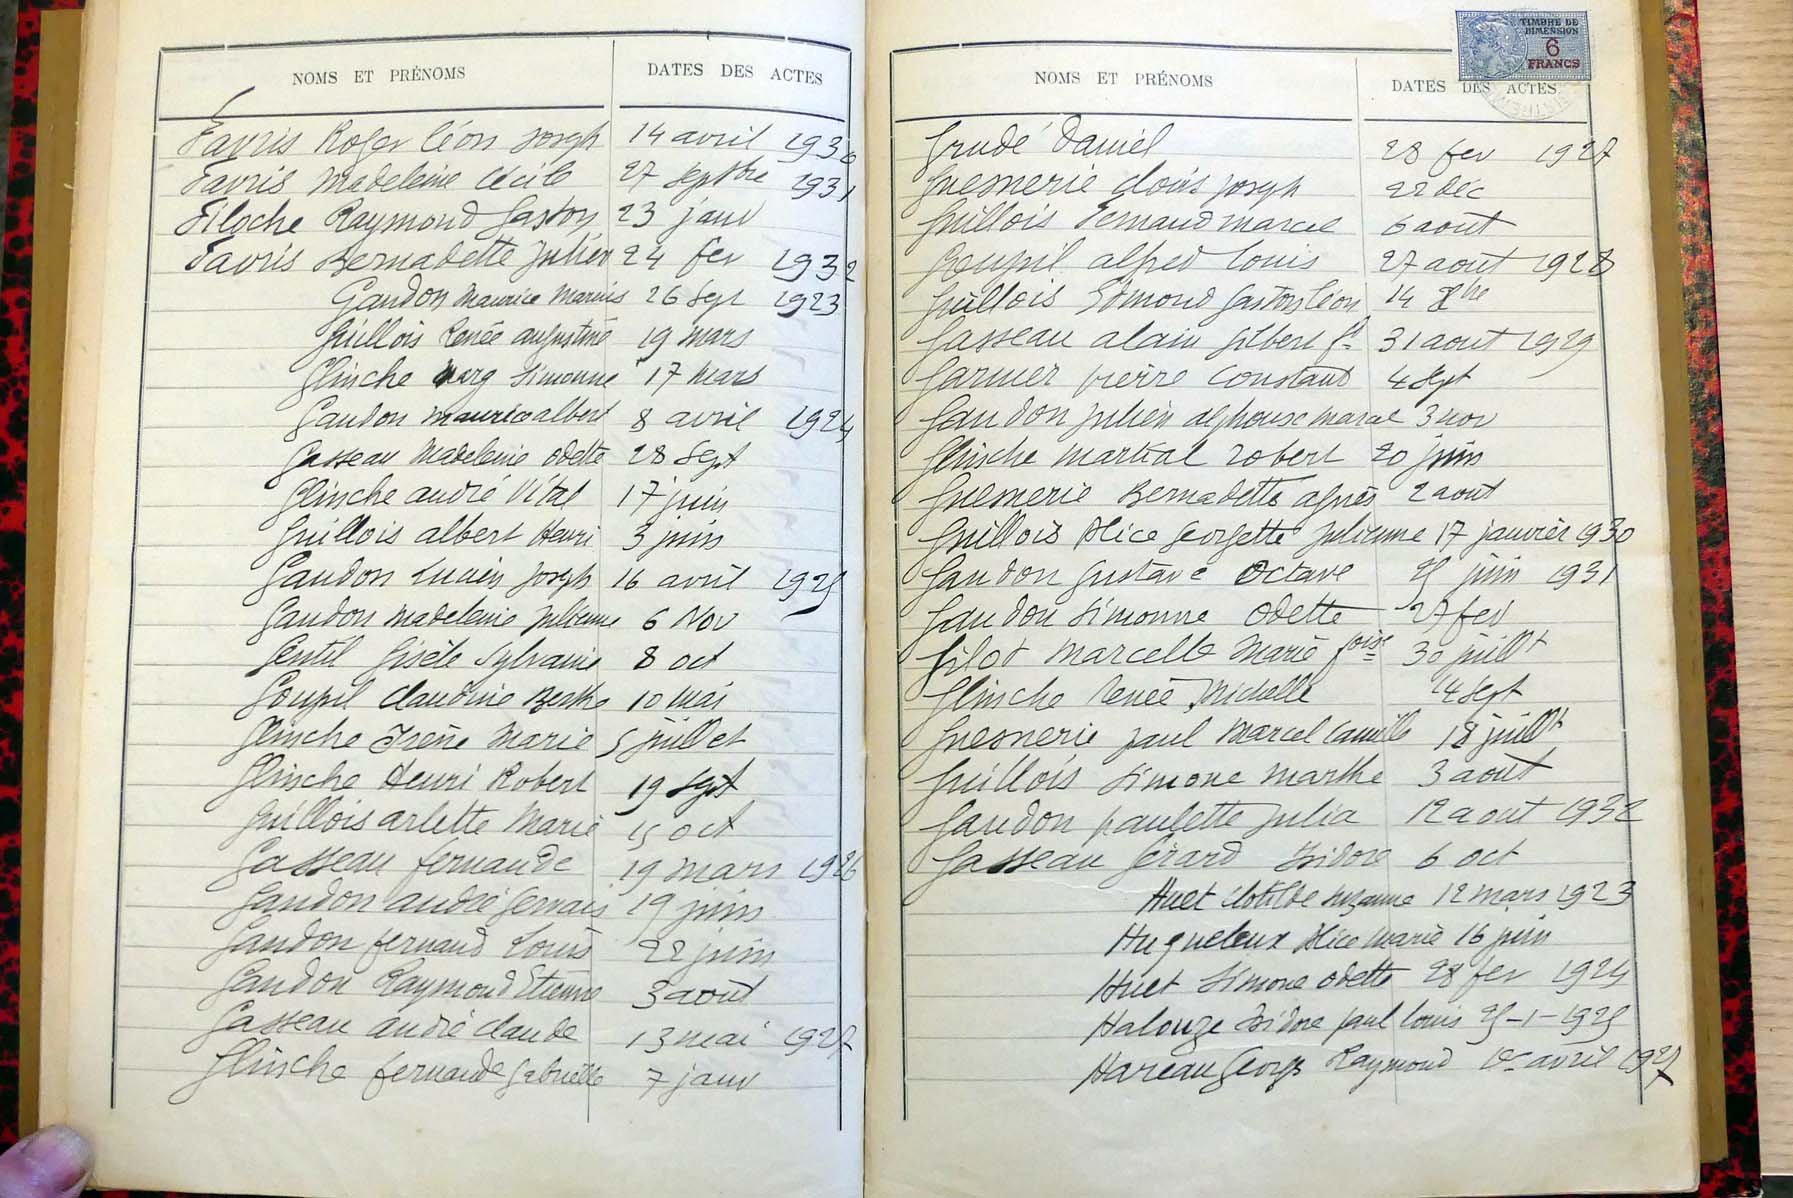 NOMS ET PRÉNOMS DATES DES ACTES
Favris Roger Léon Joseph 14 avril 1930
Favris Madeleine Cécile 27 Septbre 1931
Filoche Raymond Gaston 23 janv
Favris Bernadette Julien 24 fev 1932
Gandon Maurice Marius 26 Sept 1923
Guillois Renée Augustine 19 mars
Glinche Marg Simonne 17 Mars
Gandon Maurice albert 8 avril 1924
Gasseau Madeleine Odette 28 Sept
Glinche andré Vital 17 juin
Guillois albert Henri 3 juin
Gandon Lucien Joseph 16 avril 1925
Gandon Madeleine Julienne 6 Nov
Gentil Gisèle Sylvaine 8 oct
Goupil Claudine Berthe 10 Mai
Glinche Irène Marie 5 juillet
Glinche Henri Robert 19 Sept
Guillois arlette Marie 15 oct
Gasseau fernande 19 mars 1926
Gandon andré Gervais 19 juin
Gandon fernand Louis 22 juin
Gandon Raymond Etienne 3 août
Gasseau andré claude 13 mai 1927
Glinche fernande Gabrielle 7 janv
TIMBRE DE
DIMENSION
6
FRANCS
NOMS ET PRÉNOMS DATES DES ACTES
Grudé Daniel 28 fev 1927
Guesnerie Louis Joseph 22 Déc
Guillois Fernand marcel 6 aout
Goupil alfred Louis 27 aout 1928
Guillois Edmond Gaston Léon 14 Xbre
Gasseau alain Gilbert 31 aout 1929
Garnier pierre Constant 4 Sept
Gandon Julien alphonse marcel 3 nov
Glinche Martial robert 20 juin
Guesnerie Bernadette agnès 2 aout
Guillois Alice Georgette Julienne 17 janvier 1930
Gandon Gustave Octave 25 juin 1931
Gandon Simonne Odette 27 fev
Gilot Marcelle Marie foise 30 juillt
Glinche renée Michelle 14 Sept
Guesnerie paul Marcel Camille 18 juillt
Guillois Simone Marthe 3 août
Gandon paulette Julia 12 aout 1932
Gasseau Gérard Isidore 6 oct
Huet Clotilde Suzanne 12 mars 1923
Hugueleux Alice Marie 16 juin
Huet Simone Odette 28 fev 1924
Halouze Isidore paul Louis 25-1-1925
Hareau Georges Raymond 1er avril 1927